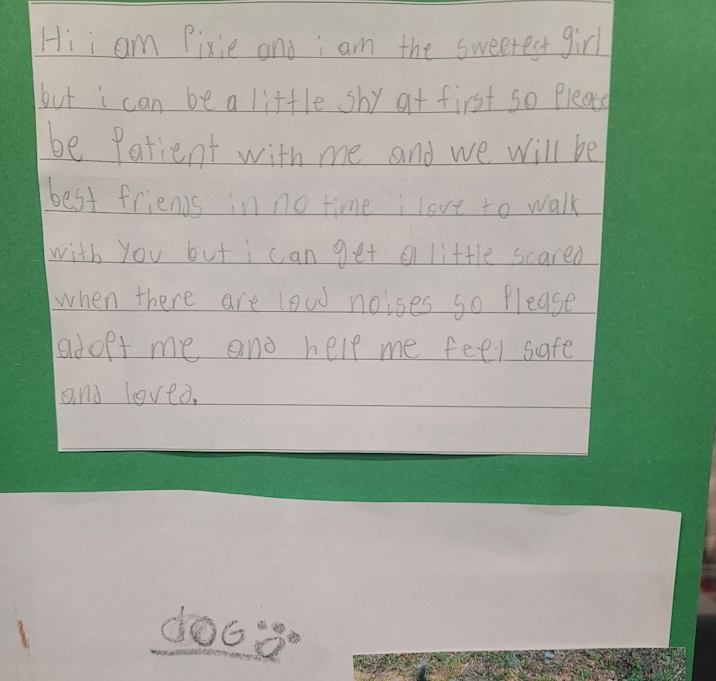 Hi i am Pixie and i am the sweetest girl
but i can be a little shy at first so Please
be Patient with me and we will be
best friends in no time i love to walk
with you but i can get a little scared
when there are loud noises so Please
adopt me and help me feel safe
and loved.
dog